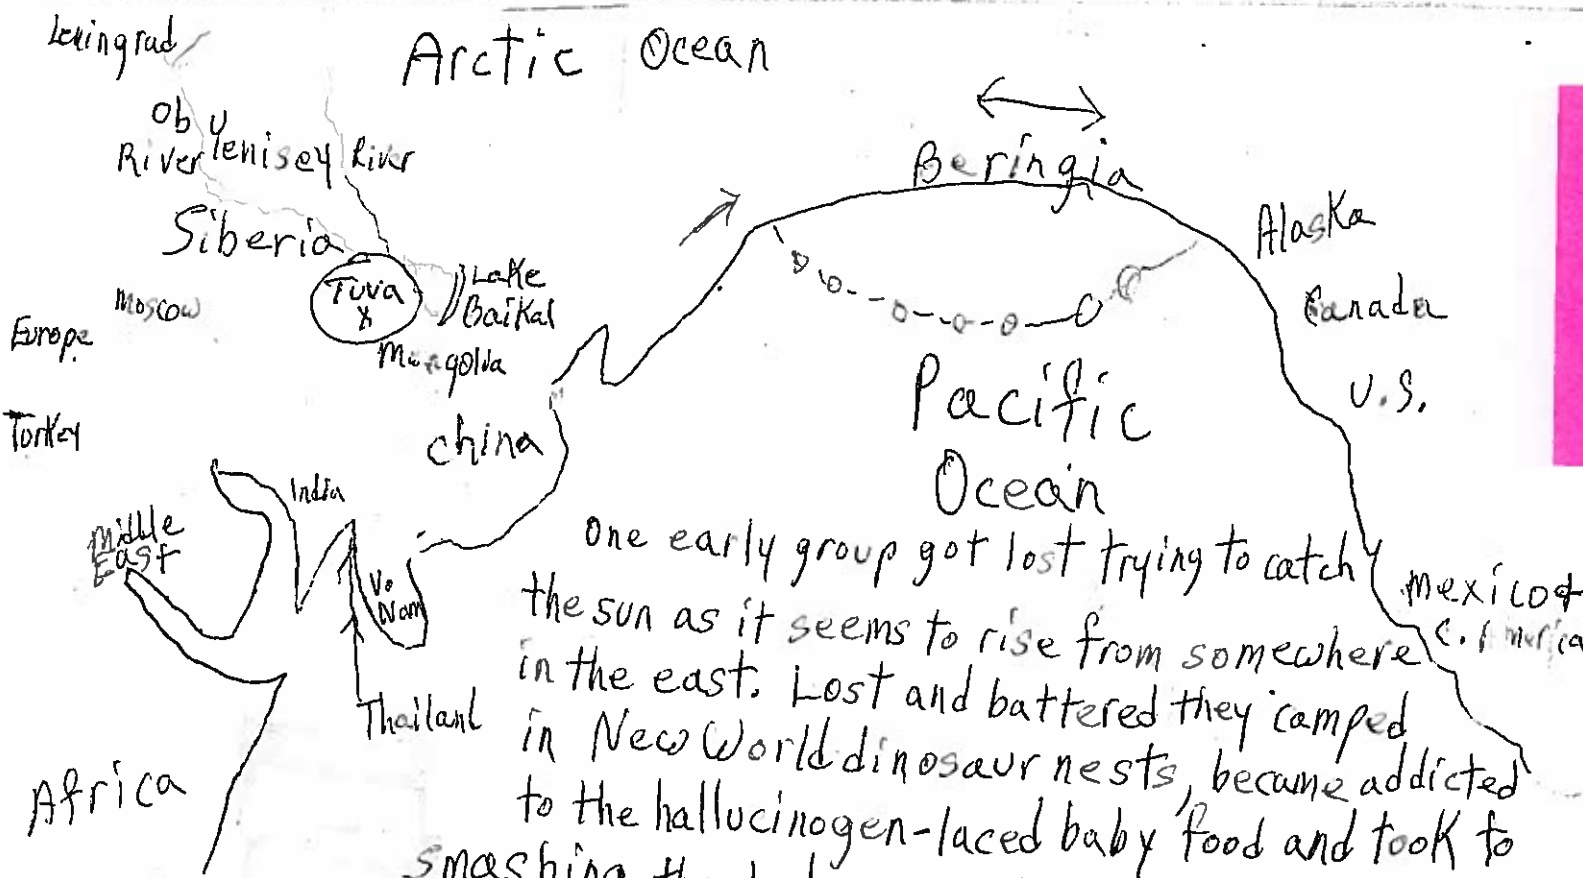 Leningrad
Arctic Ocean
Ob
River
Yenisey River
Beringia
Siberia
Alaska
Tuva
X
Lake
Baikal
Moscow
Canada
Europe
Mongolia
Pacific
Ocean
U.S.
Torkey
China
India
Middle
East
V.
Nam
Thailand
Africa
Mexico &
C. America
One early group got lost trying to catch
the sun as it seems to rise from somewhere
in the east. Lost and battered they camped
in New World dinosaur nests, became addicted
to the hallucinogen-laced baby food and took to
smashing the